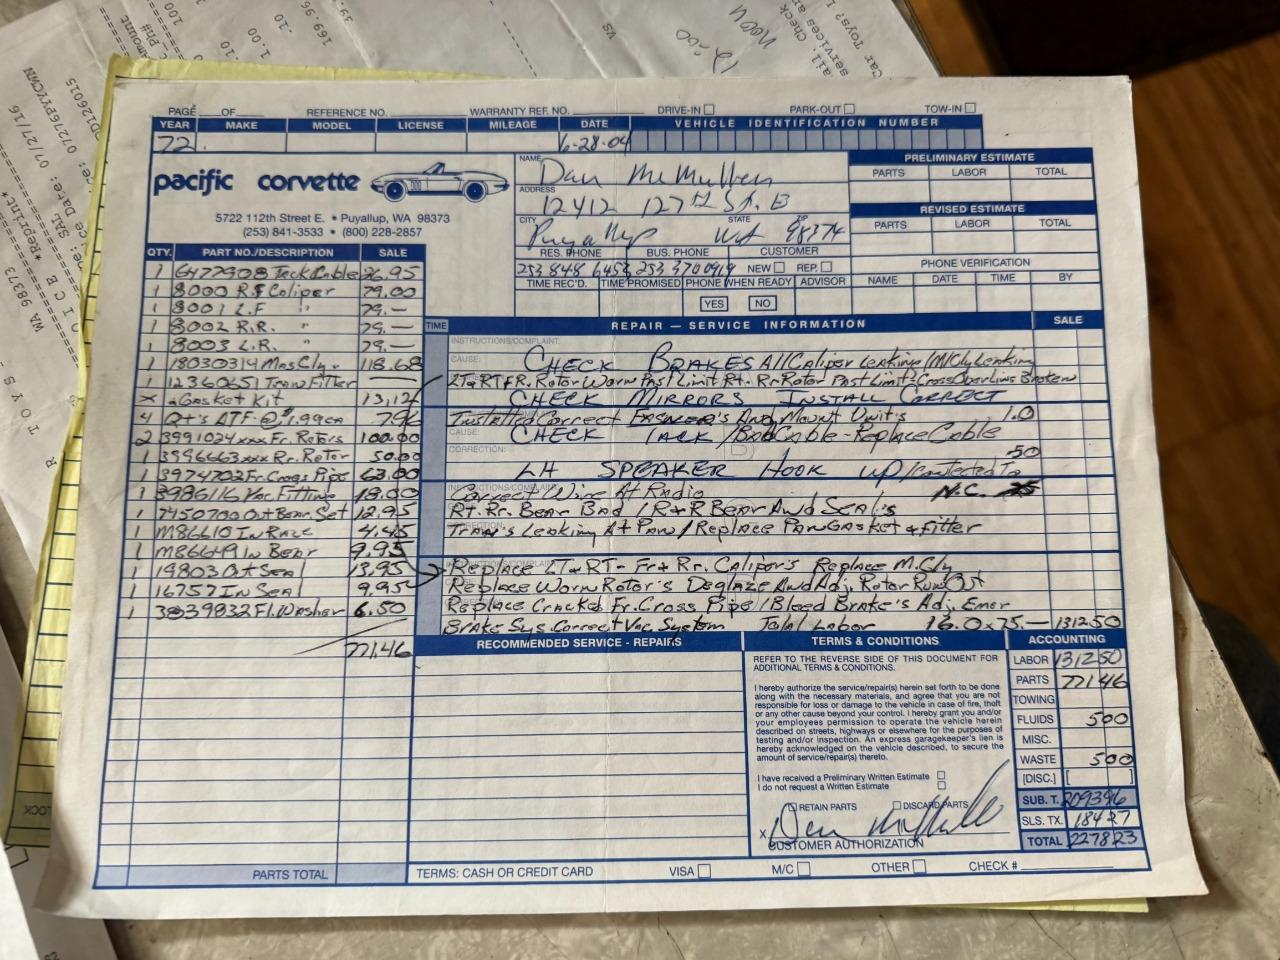 PAGE ___ OF ___ REFERENCE NO. ___ WARRANTY REF. NO. ___ DRIVE-IN PARK-OUT TOW-IN
YEAR MAKE MODEL LICENSE MILEAGE DATE VEHICLE IDENTIFICATION NUMBER
72 6-28-04
pacific corvette
5722 112th Street E. • Puyallup, WA 98373
(253) 841-3533 • (800) 228-2857
NAME Dan McMullen
ADDRESS 12412 127th St. E
CITY Puyallup STATE WA ZIP 98374
RES. PHONE BUS. PHONE CUSTOMER
253 848 6452 253 370 0919 NEW REP.
TIME REC'D. TIME PROMISED PHONE WHEN READY ADVISOR
YES NO
PRELIMINARY ESTIMATE
PARTS LABOR TOTAL
REVISED ESTIMATE
PARTS LABOR TOTAL
PHONE VERIFICATION
NAME DATE TIME BY
QTY. PART NO./DESCRIPTION SALE
1 6477908 Tack Cable 26.95
1 8000 R.F Caliper 79.00
1 8001 L.F " 79.—
1 8002 R.R. " 79.—
1 8003 L.R. " 79.—
1 18030314 Mas Cly. 118.68
1 12360651 Tran Filter —
x Gasket Kit 13,12
4 Qt's ATF @ $1.99ea 7.96
2 3991024xxx Fr. Rotors 100.00
1 3996663xxx Rr. Rotor 50.00
1 3974702 Fr. Cross Pipe 63.00
1 3986116 Vac. Fitting 18.00
1 7450700 Out Bear. Set 12.95
1 M86610 In Race 4.45
1 M86649 In Bear 9.95
1 19803 Out Seal 13.95
1 16757 In Seal 9.95
1 3839832 Fl. Washer 6.50
771.46
PARTS TOTAL
TIME REPAIR — SERVICE INFORMATION SALE
INSTRUCTIONS/COMPLAINT:
CAUSE: CHECK BRAKES All Caliper Leaking/M/Cly Leaking
LT & RT FR. Rotor Worn Past Limit Rt. Rr Rotor Past Limit
CHECK MIRRORS INSTALL CORRECT
Installed Correct And Mount Unit's 1.0
CAUSE: CHECK TACK / Bad Cable - Replace Cable
CORRECTION: .50
LH SPEAKER HOOK UP/Conected To
Correct Wire At Radio N.C.
Rt. Rr. Bear Bad / R+R Bear And Seal's
Tran's Leaking At Pan / Replace Pan Gasket & Filter
Replace LT & RT - Fr & Rr. Caliper's Replace M.Cly
Replace Worn Rotor's Deglaze And Adj. Rotor Run Out
Replace Cracked Fr. Cross Pipe / Bleed Brake's Adj. Emer
Brake Sys. Correct Vac. System Total Labor 75.— 1312.50
RECOMMENDED SERVICE - REPAIRS
TERMS & CONDITIONS
REFER TO THE REVERSE SIDE OF THIS DOCUMENT FOR
ADDITIONAL TERMS & CONDITIONS.
I hereby authorize the service/repair(s) herein set forth to be done
along with the necessary materials, and agree that you are not
responsible for loss or damage to the vehicle in case of fire, theft
or any other cause beyond your control. I hereby grant you and/or
your employees permission to operate the vehicle herein
described on streets, highways or elsewhere for the purposes of
testing and/or inspection. An express garagekeeper's lien is
hereby acknowledged on the vehicle described, to secure the
amount of service/repair(s) thereto.
I have received a Preliminary Written Estimate
I do not request a Written Estimate
RETAIN PARTS DISCARD PARTS
X Dan McMullen
CUSTOMER AUTHORIZATION
ACCOUNTING
LABOR 1312 50
PARTS 771 46
TOWING
FLUIDS 5 00
MISC.
WASTE 5 00
[DISC.] [ ]
SUB. T. 2093 96
SLS. TX. 184 27
TOTAL 2278 23
TERMS: CASH OR CREDIT CARD VISA M/C OTHER CHECK #